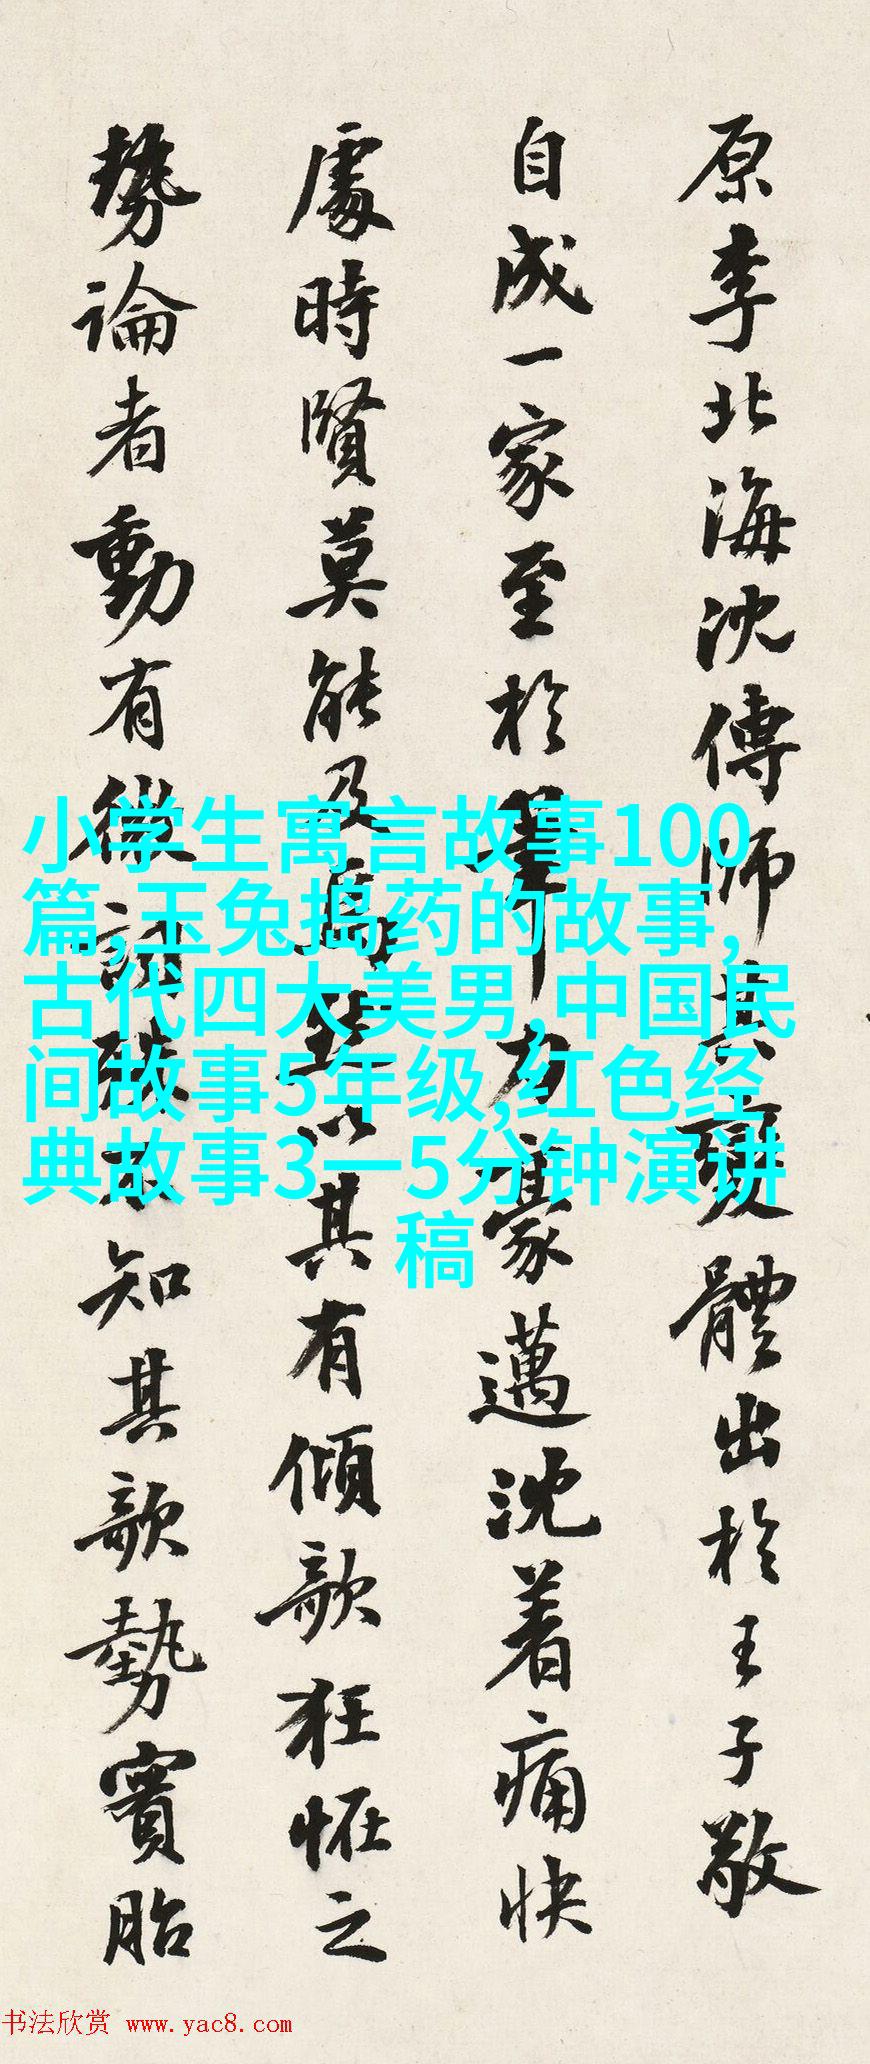 原李北海沈傳師其變體出於王子敬
自成一家至於筆力豪邁沈着痛快
處時賢莫能及焉然以其有傾欹狂怪之
勢論者動有微詞殊不知其欹勢實胎
小学生寓言故事100
篇,玉兔捣药的故事,
古代四大美男,中国民
间故事5年级,红色经
典故事3一5分钟演讲
稿
书法欣赏 www.yac8.com